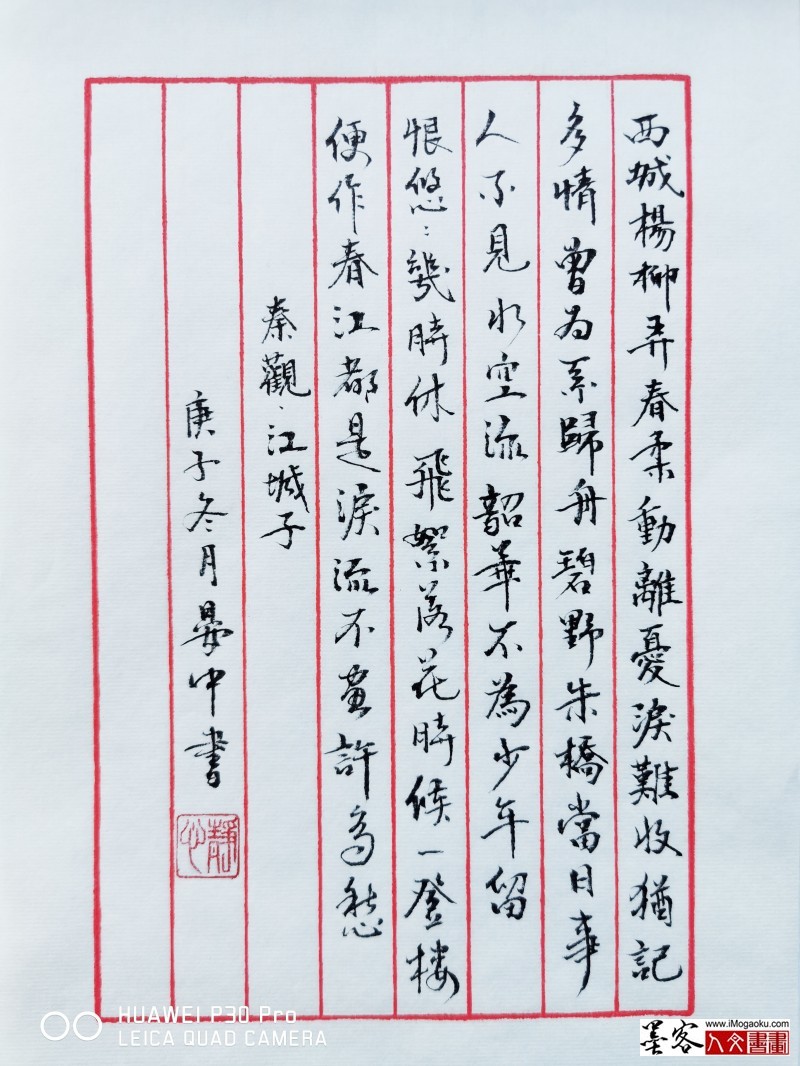 西城楊柳弄春柔動離憂淚難收猶記
多情曾为系歸舟碧野朱橋當日事
人不見水空流韶華不為少年留
恨悠:幾時休飛絮落花時候一登楼
便作春江都是淚流不盡許多愁
秦觀·江城子
庚子冬月晏中書
靜心
HUAWEI P30 Pro
LEICA QUAD CAMERA
墨客
www.iMogaoku.com
人文書畫